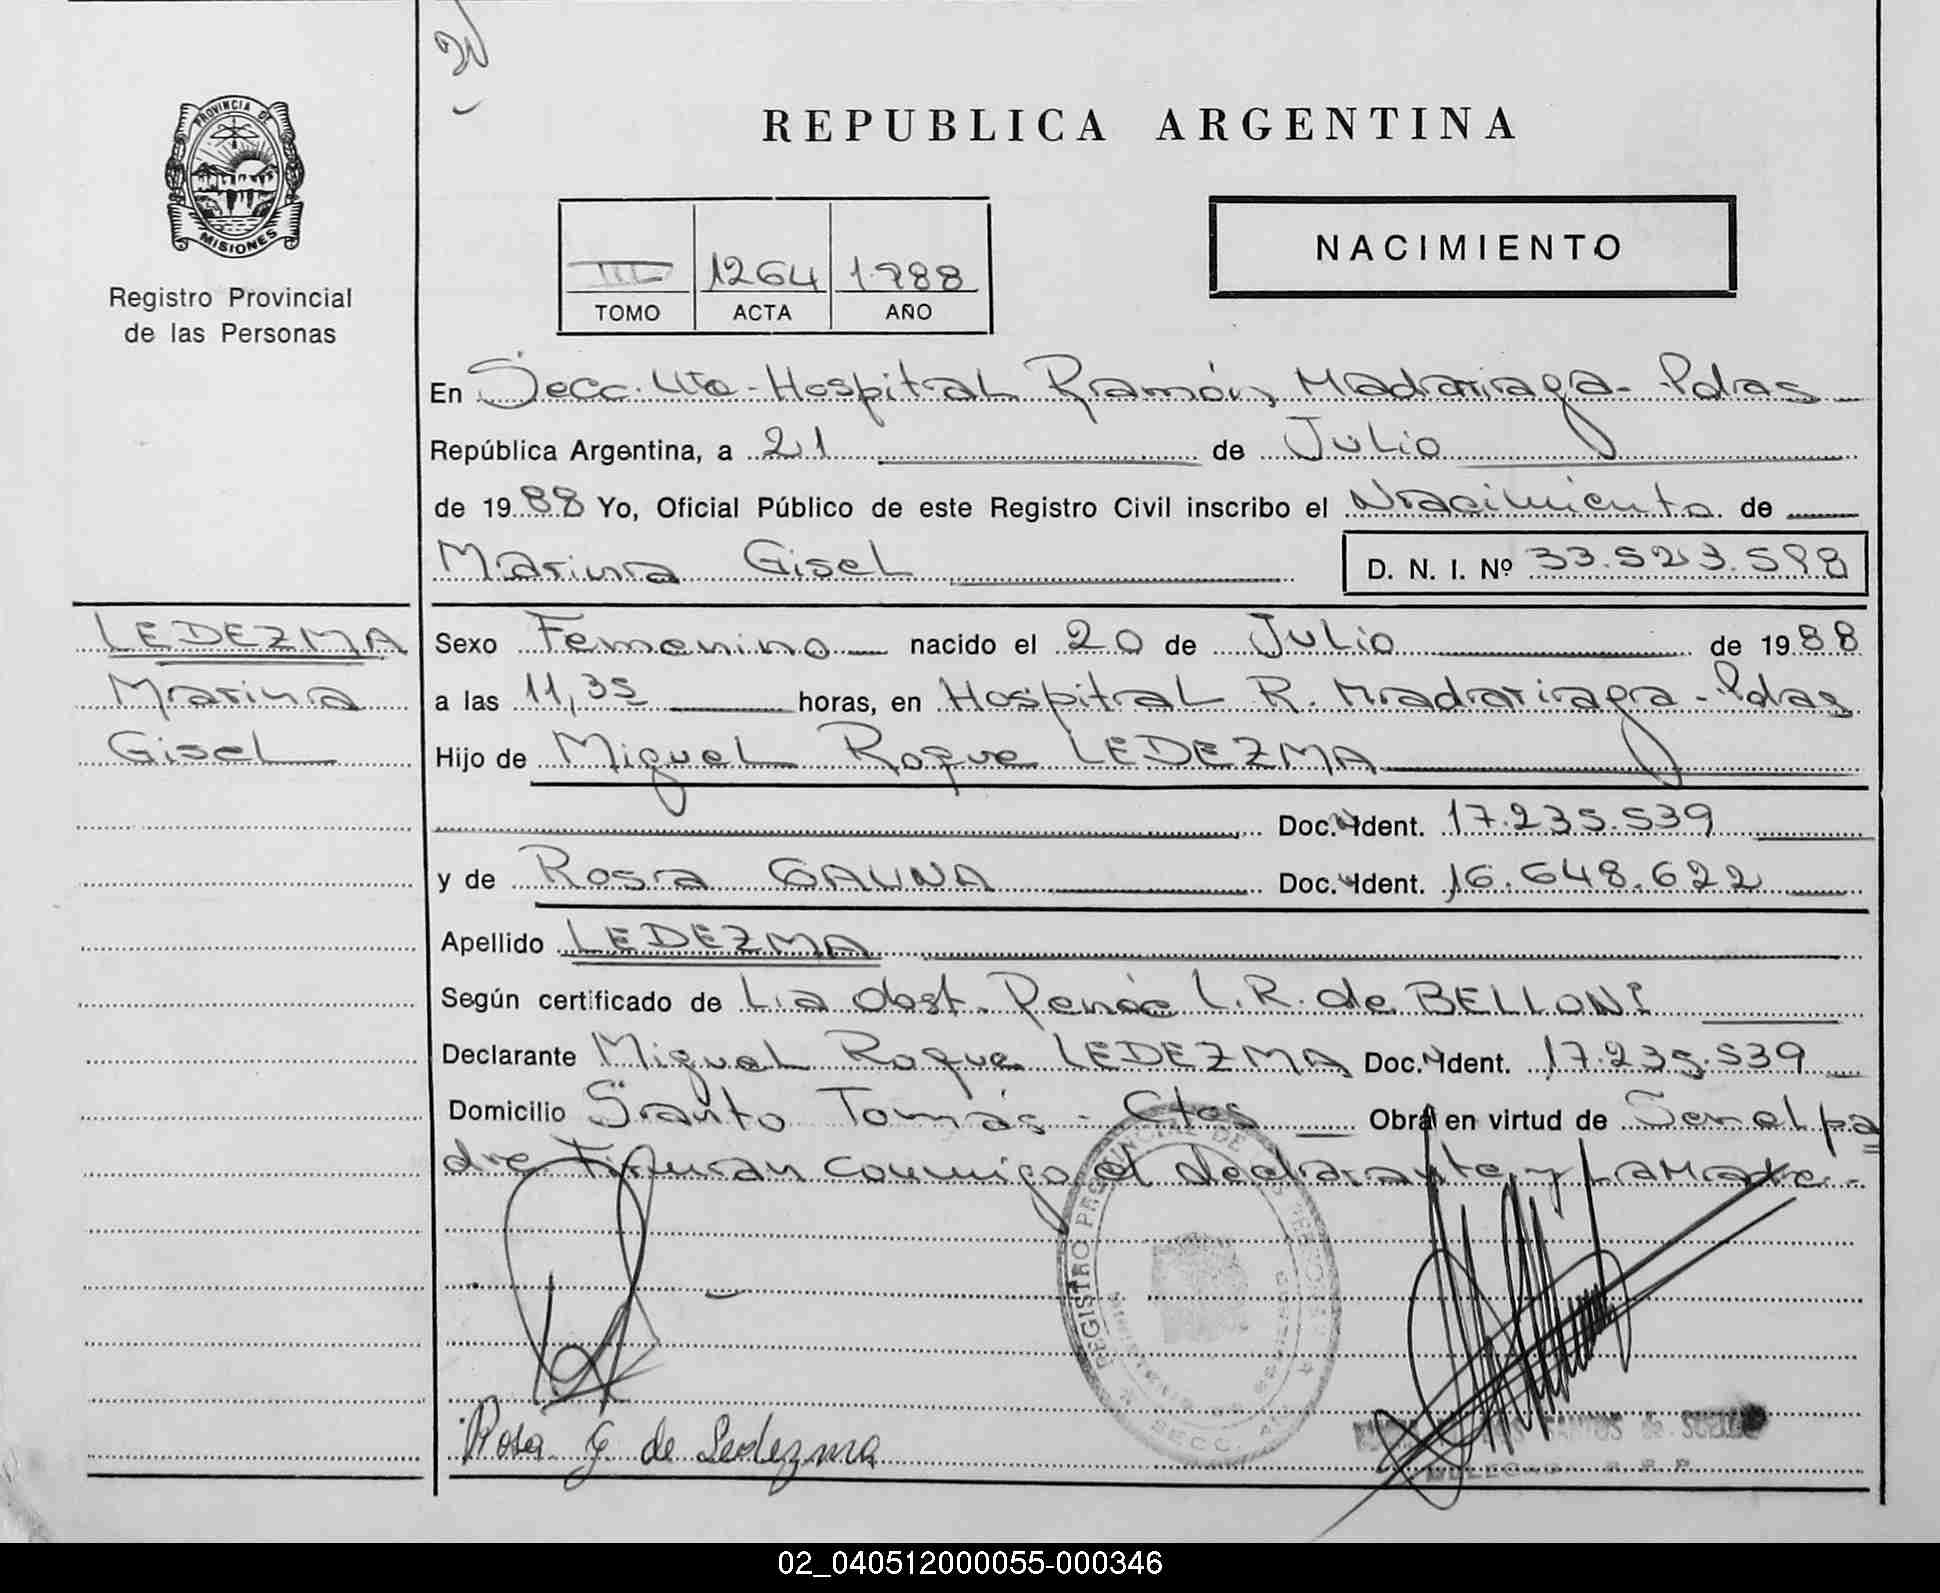 REPUBLICA ARGENTINA
PROVINCIA DE
MISIONES
Registro Provincial
de las Personas
III 1264 1988
TOMO ACTA AÑO
NACIMIENTO
En Secc. 4ta - Hospital Ramón Madariaga - Pdas
República Argentina, a 21 de Julio
de 1988 Yo, Oficial Público de este Registro Civil inscribo el Nacimiento de
Marina Gisel
D. N. I. Nº 33.523.598
LEDEZMA
Marina
Gisel
Sexo Femenino nacido el 20 de Julio de 1988
a las 11,35 horas, en Hospital R. Madariaga - Pdas
Hijo de Miguel Roque LEDEZMA
Doc. Ident. 17.235.539
y de Rosa GAUNA Doc. Ident. 16.648.622
Apellido LEDEZMA
Según certificado de La obst. Renée L. R. de BELLONI
Declarante Miguel Roque LEDEZMA Doc. Ident. 17.235.539
Domicilio Santo Tomás - Ctes Obra en virtud de Ser el pa
dre Firman conmigo el declarante y La Madre.-
REGISTRO PROVINCIAL DE LAS PERSONAS
SECC. 4
Rosa G. de Ledezma
02_040512000055-000346